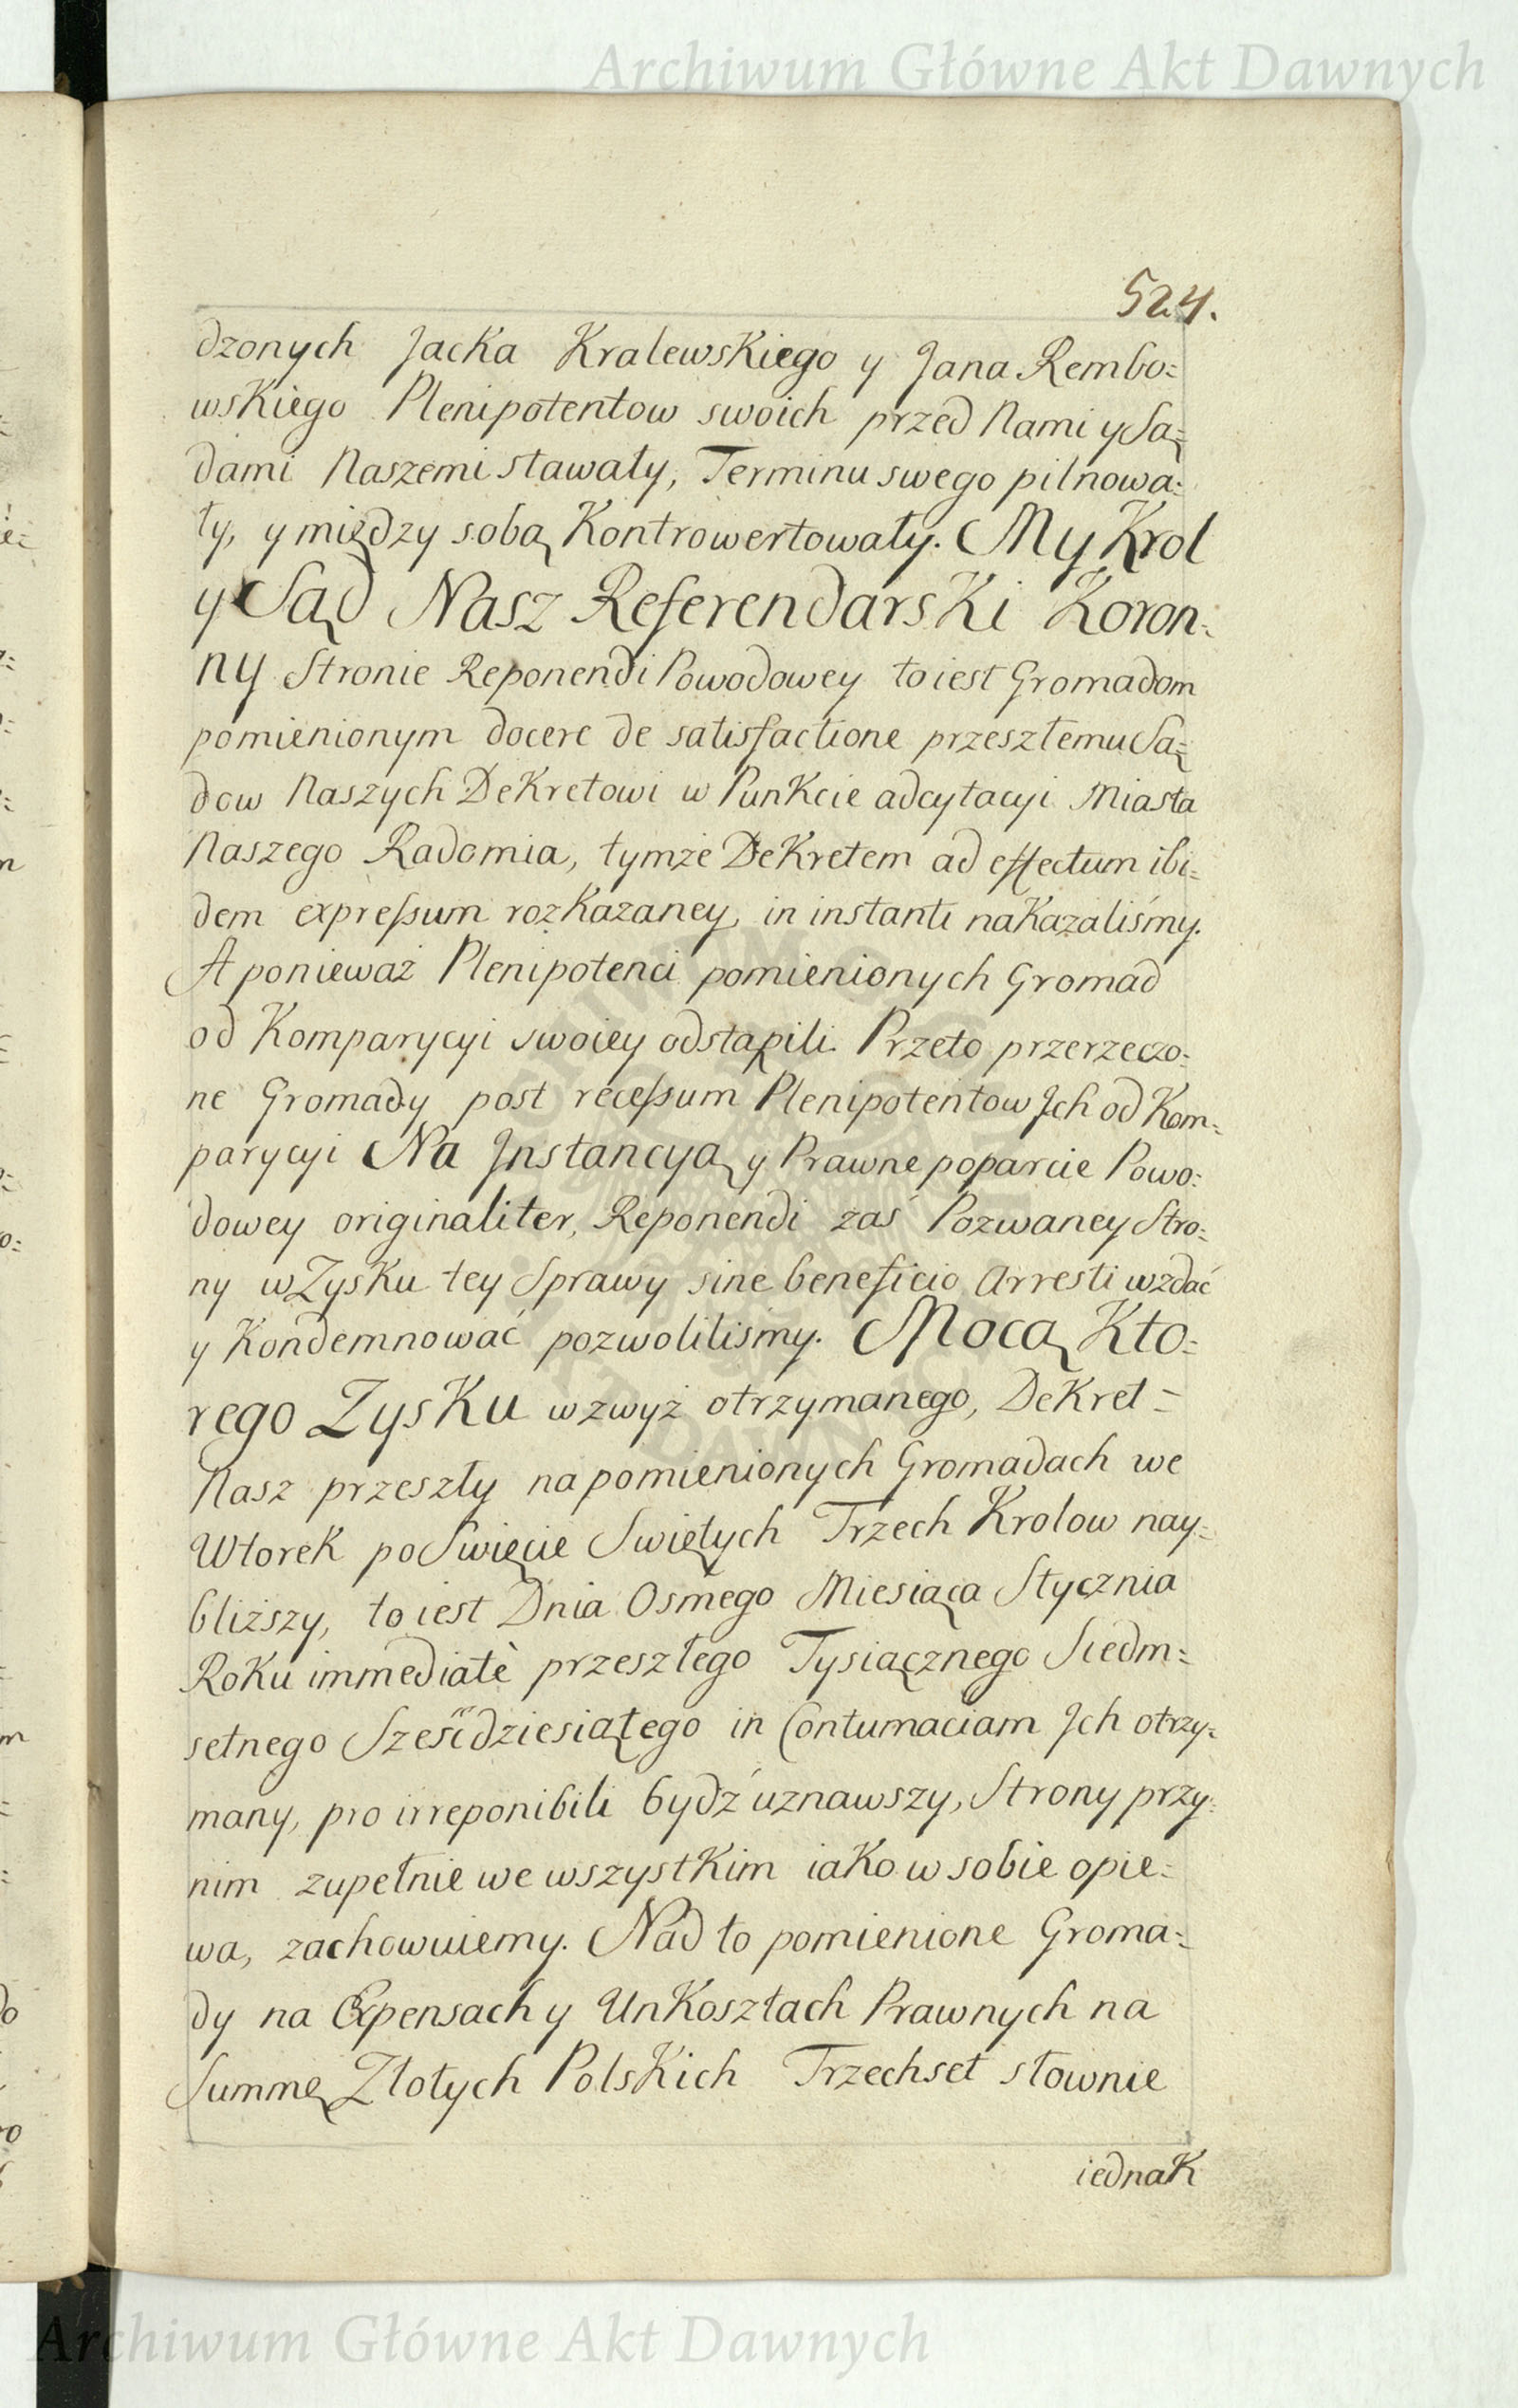 Archiwum Główne Akt Dawnych
524.
dzonych Jacka Kralewskiego y Jana Rembo=
wskiego Plenipotentow swoich przed Nami y Są=
dami Naszemi stawały, Terminu swego pilnowa=
ły, y między sobą Kontrowertowały. My Krol
y Sąd Nasz Referendarski Koron=
ny Stronie Reponendi Powodowey to iest Gromadom
pomienionym docere de satisfactione przeszłemu Są=
dow Naszych Dekretowi w Punkcie adcytacyi Miasta
Naszego Radomia, tymże Dekretem ad effectum ibi=
dem expressum rozkazaney, in instanti nakazaliśmy.
A ponieważ Plenipotenci pomienionych Gromad
od Komparycyi swoiey odstąpili. Przeto przerzeczo=
ne Gromady post recessum Plenipotentow Jch od Kom=
parycyi Na Jnstancyą y Prawne poparcie Powo=
dowey originaliter, Reponendi zaś Pozwaney Stro=
ny w Zysku tey Sprawy sine beneficio Arresti wzdać
y Kondemnować pozwoliliśmy. Mocą Kto=
rego Zysku wzwyż otrzymanego, Dekret =
Nasz przeszły na pomienionych Gromadach we
Wtorek po Swięcie Swiętych Trzech Krolow nay=
bliższy, to iest Dnia Osmego Miesiąca Stycznia
Roku immediatè przeszłego Tysiącznego Siedm=
setnego Sześćdziesiątego in Contumaciam Jch otrzy=
many, pro irreponibili bydź uznawszy, Strony przy=
nim zupełnie we wszystkim iako w sobie opie=
wa, zachowuiemy. Nad to pomienione Groma=
dy na Expensach y Unkosztach Prawnych na
Summę Złotych Polskich Trzechset słownie
iednak
Archiwum Główne Akt Dawnych